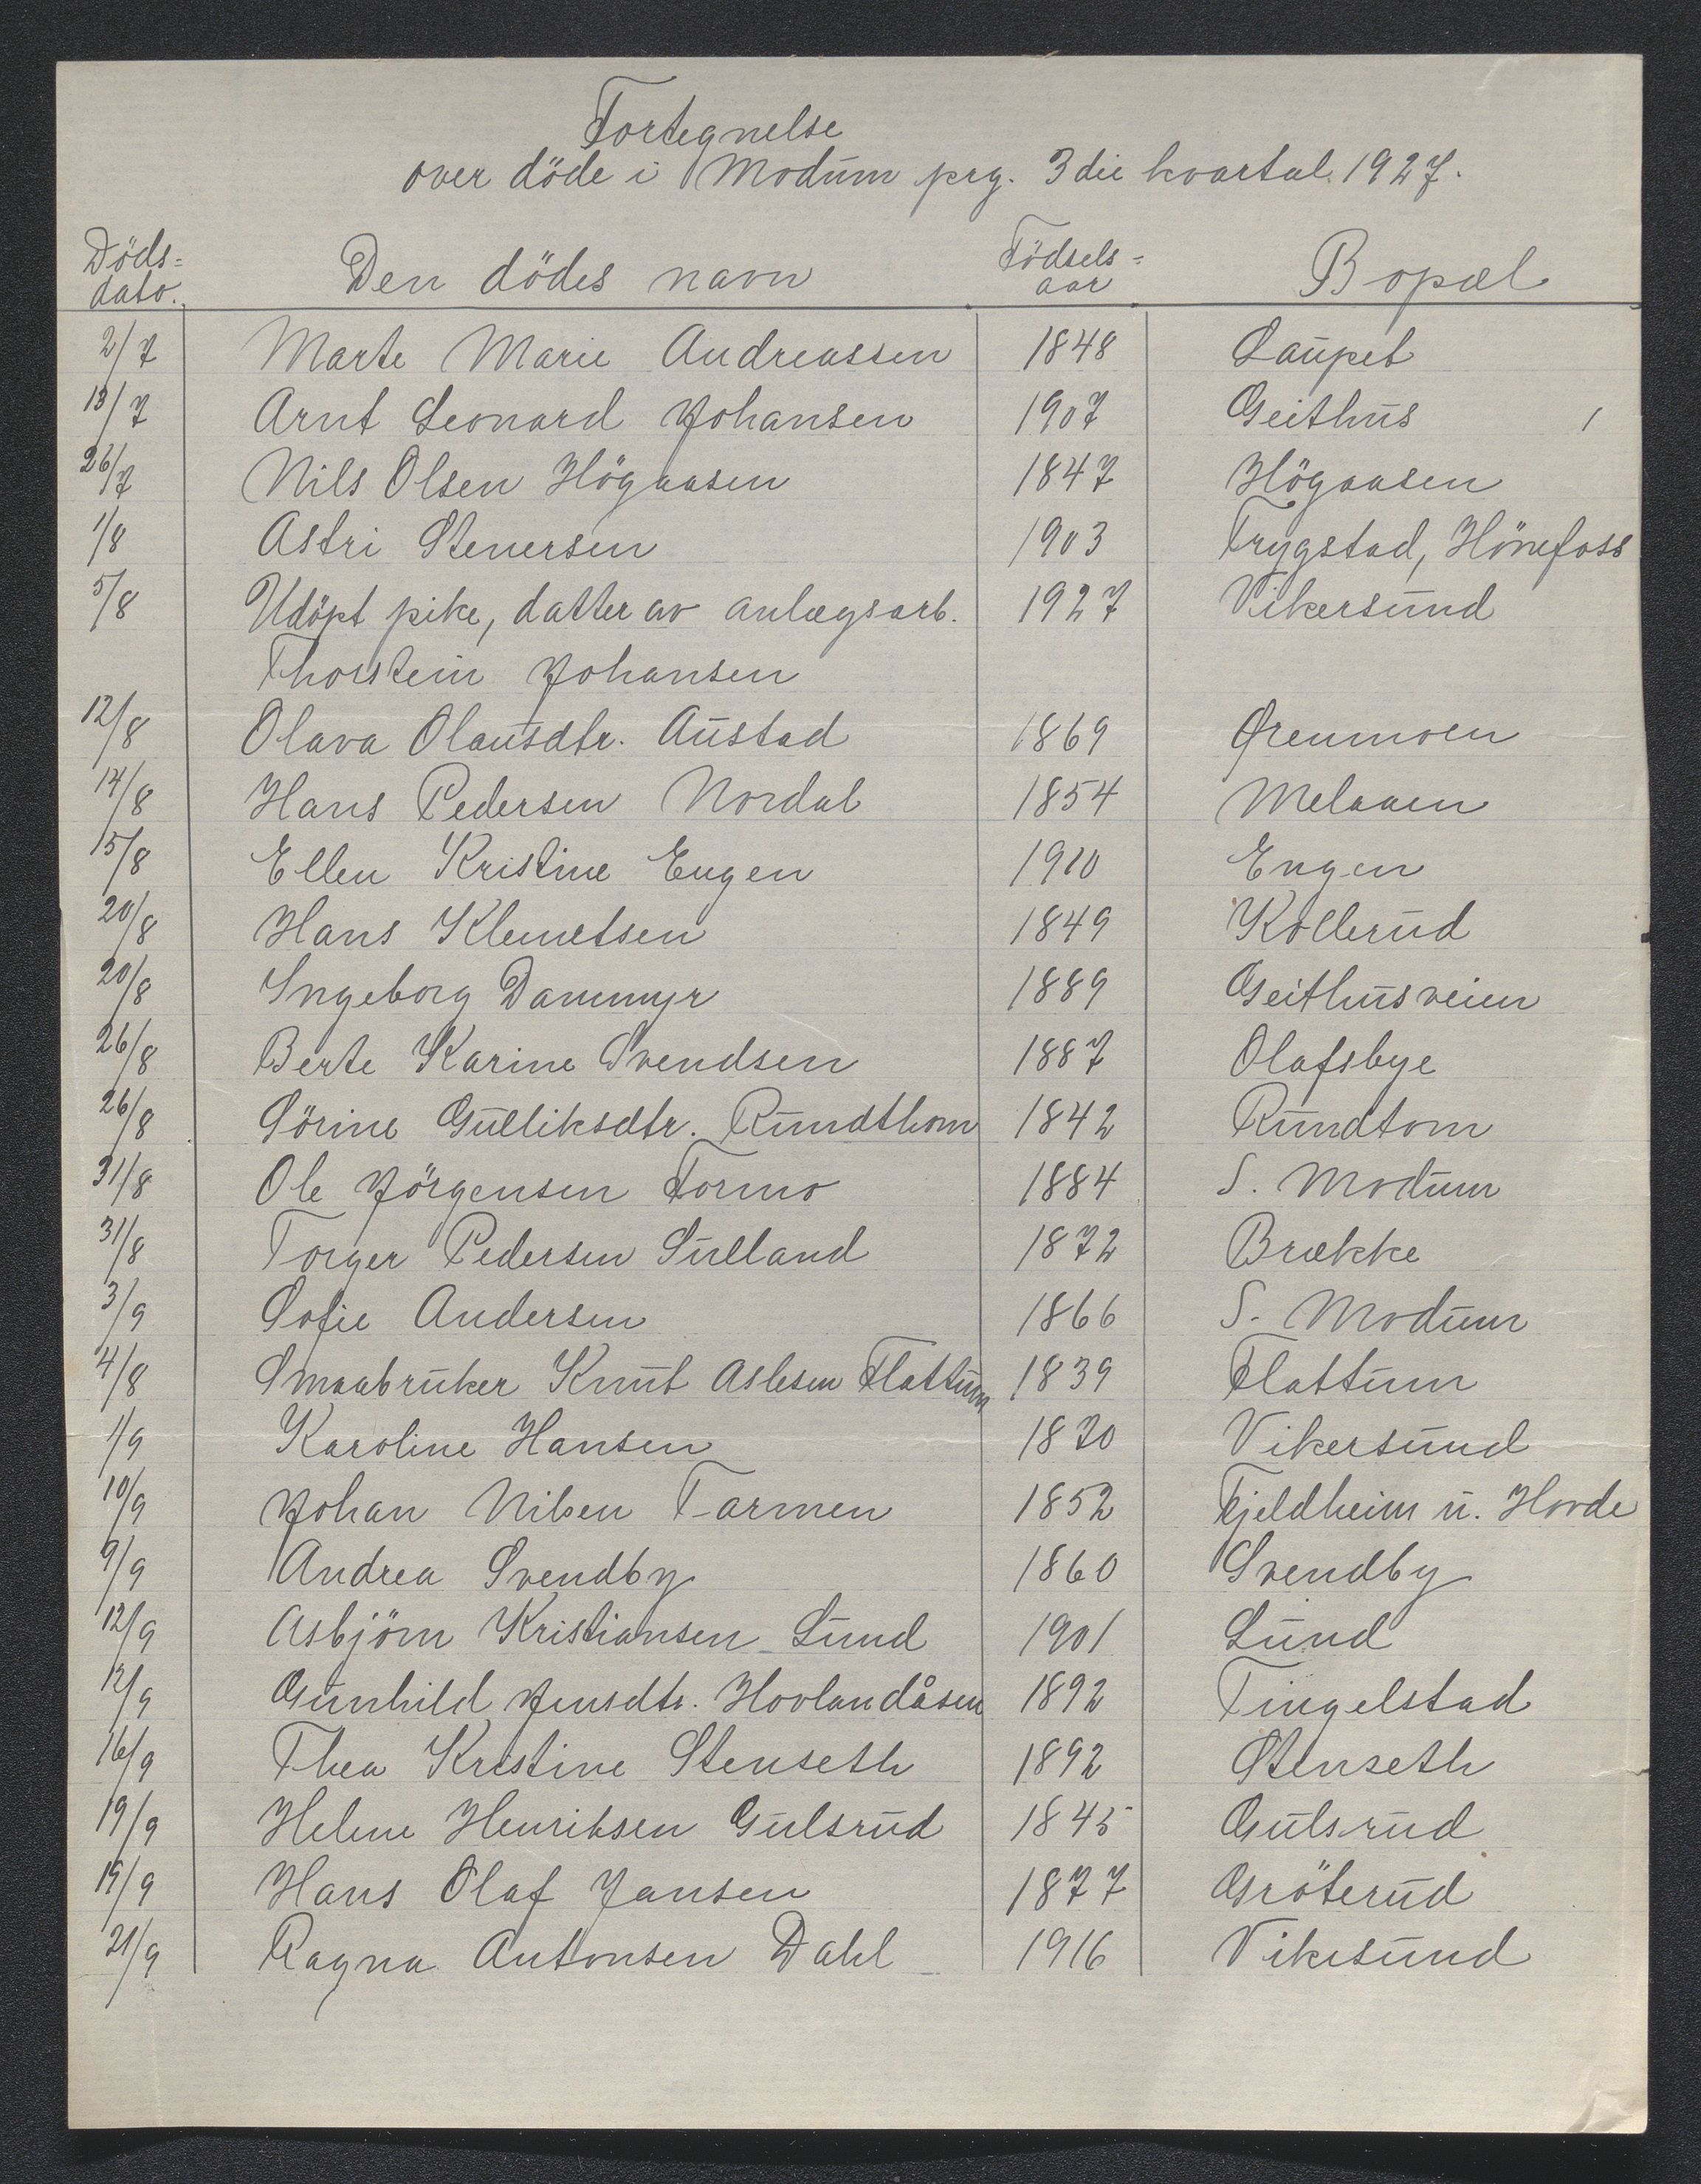 Fortegnelse
over döde i Modum prg. 3die kvartal 1927.
Döds= Den dödes navn Födsels= Bopæl
dato. aar
2/7 Marte Marie Andreassen 1848 Laupet
13/7 Arnt Leonard Johansen 1907 Geithus
26/7 Nils Olsen Högaasen 1847 Högaasen
1/8 Astri Stenersen 1903 Trygstad, Hönefoss
5/8 Udöpt pike, datter av anlægsarb. 1927 Vikersund
Thorstein Johansen
12/8 Olava Olausdtr. Austad 1869 Grenmoen
14/8 Hans Pedersen Nordal 1854 Melaaen
15/8 Ellen Kristine Engen 1910 Engen
20/8 Hans Klemetsen 1849 Kollerud
20/8 Ingeborg Dammyr 1889 Geithusveien
26/8 Berte Karine Svendsen 1887 Olafsbye
26/8 Sörine Gulliksdtr. Rundthom 1842 Rundtom
31/8 Ole Jörgensen Formo 1884 S. Modum
31/8 Torger Pedersen Sulland 1872 Brække
3/9 Sofie Andersen 1866 S. Modum
4/8 Smaabruker Knut Aslesen Flattum 1839 Flattum
1/9 Karoline Hansen 1870 Vikersund
10/9 Johan Nilsen Tarmen 1852 Fjeldheim u. Hovde
9/9 Andrea Svendby 1860 Svendby
12/9 Asbjörn Kristiansen Lund 1901 Lund
12/9 Gunhild Jensdtr. Hovlandåsen 1892 Tingelstad
16/9 Thea Kristine Stenseth 1892 Stenseth
19/9 Helene Henriksen Gulsrud 1845 Gulsrud
19/9 Hans Olaf Jansen 1877 Gröterud
21/9 Ragna Antonsen Dahl 1916 Vikersund